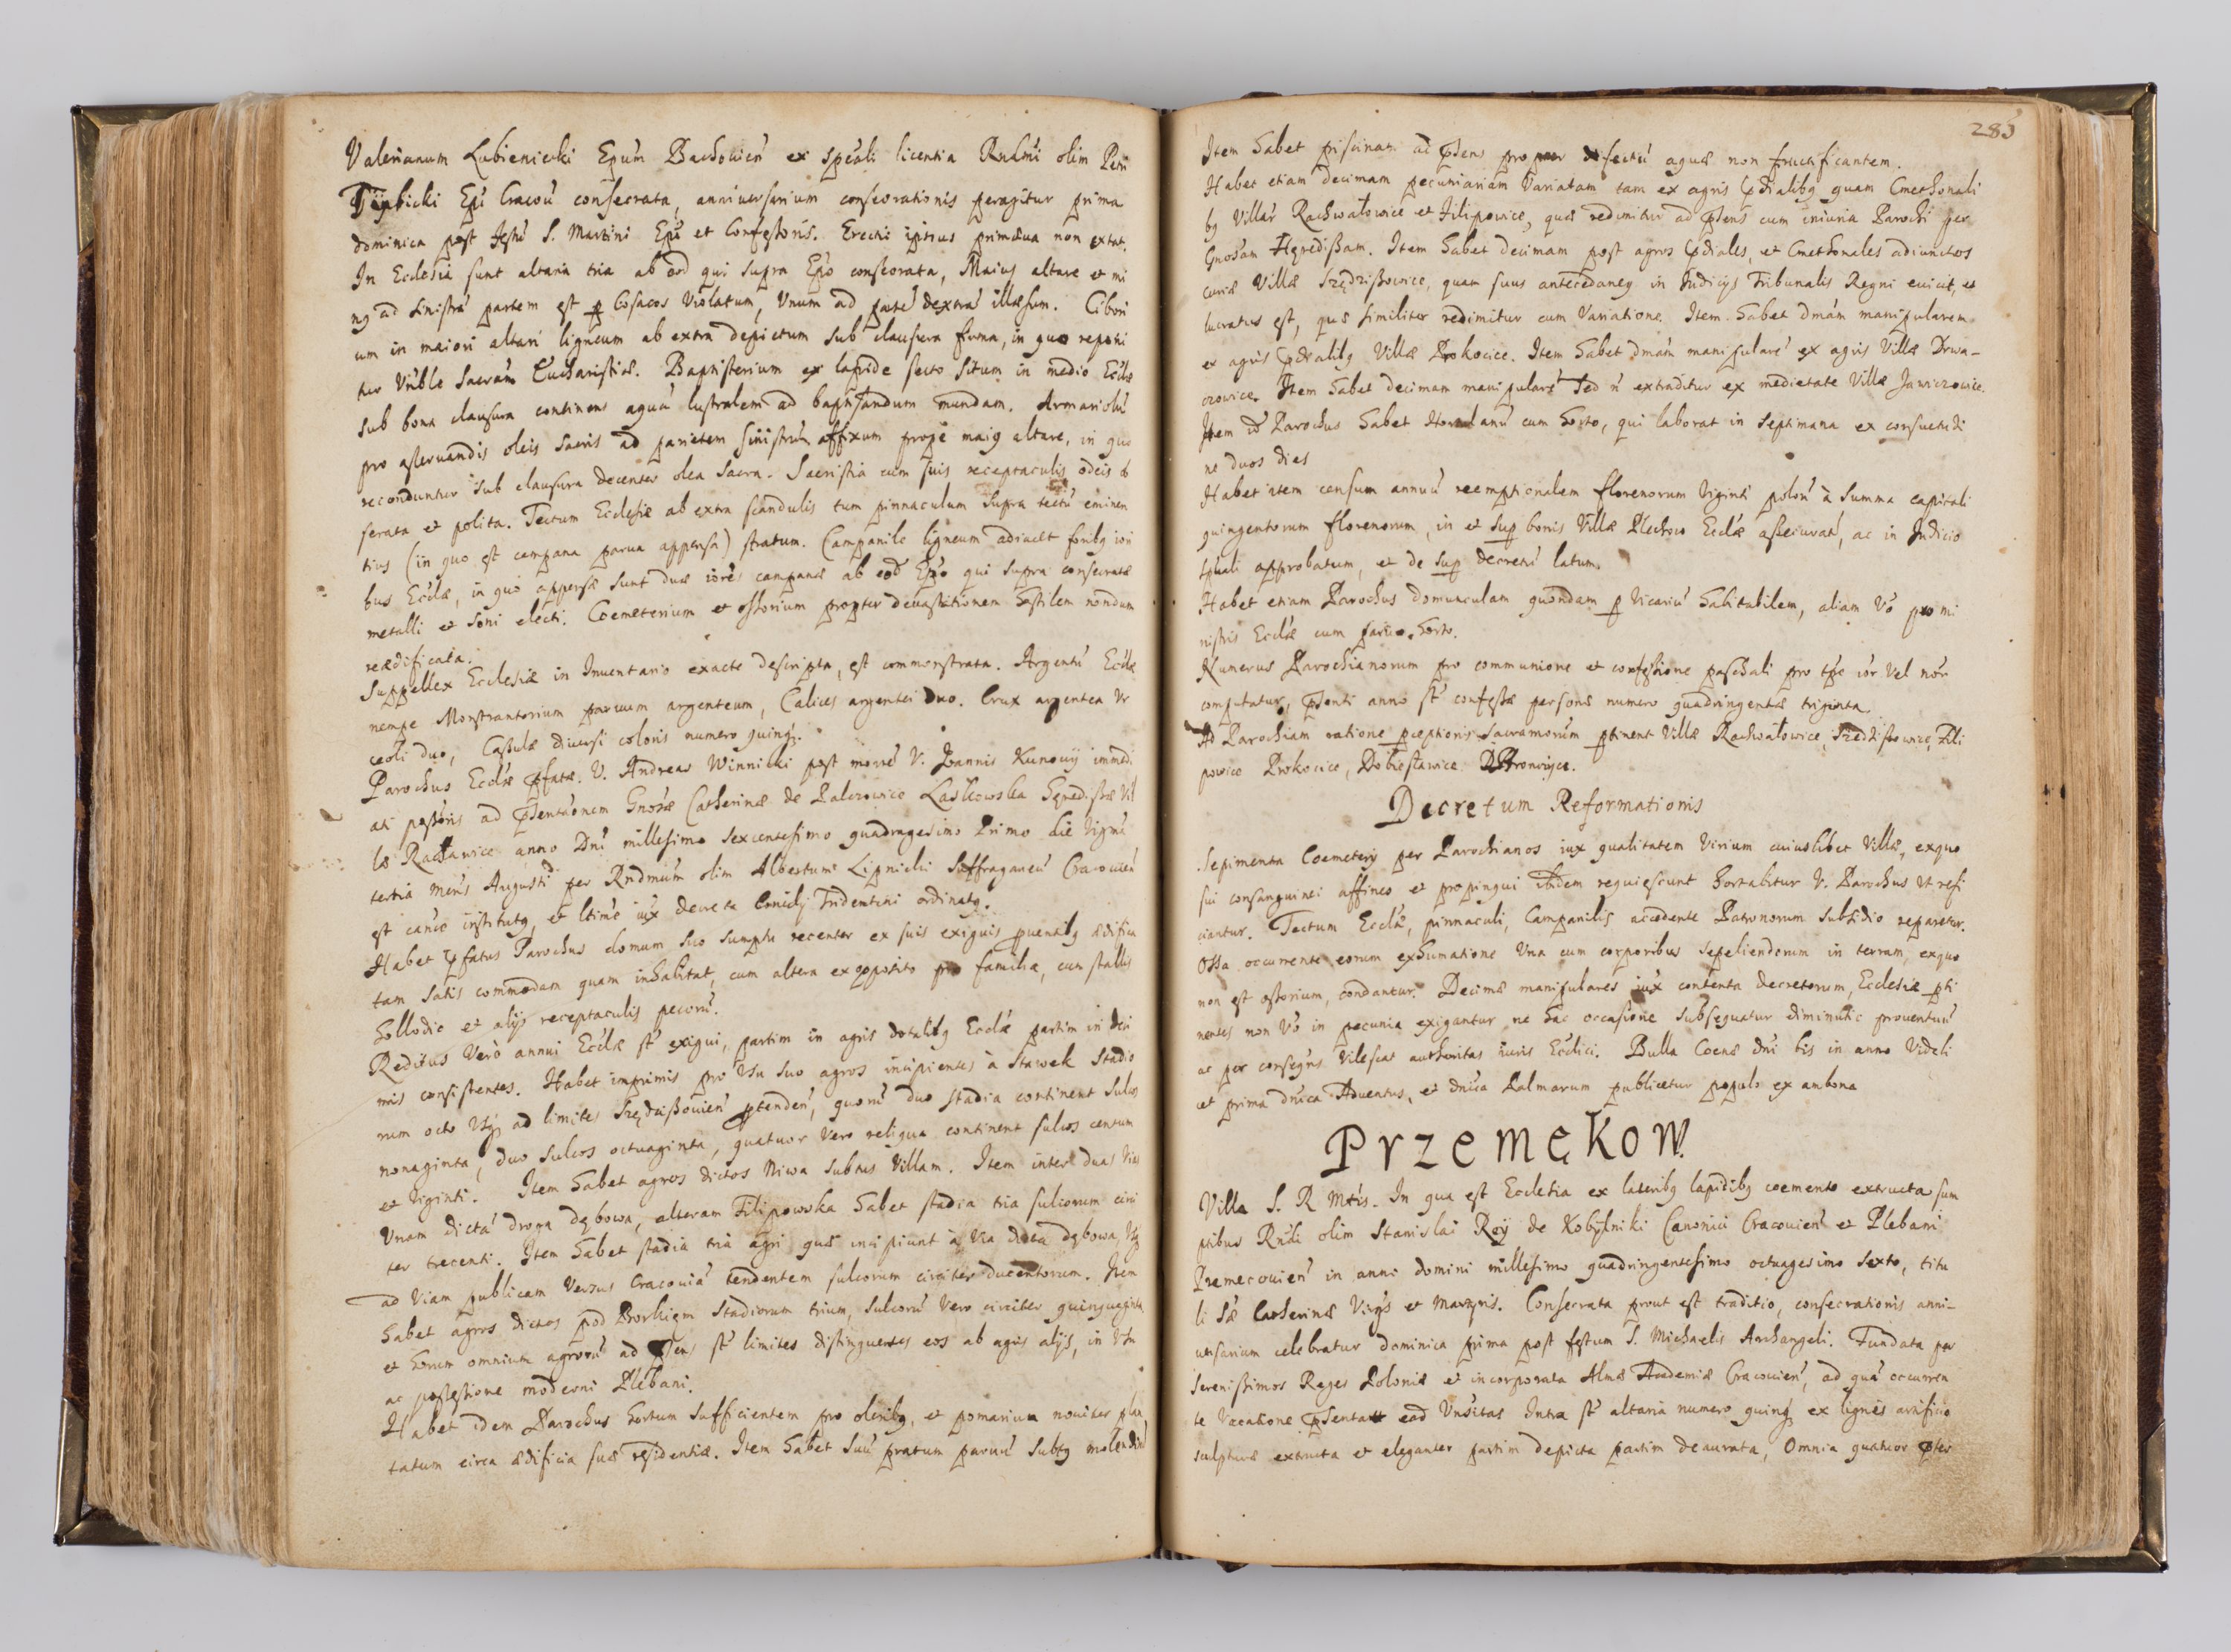 Valerianum Lubienicki Epum Bachouien ex spcali licentia Rndmi olim Petri
Epi Cracou consecrata, anniuersarium consecrationis peragitur prima
dominica post festu S. Martini Epi et Confessoris. Erectio ipsius primaeua non extat.
In Ecclesia sunt altaria tria ab eod qui supra Epo consecrata, Maius altare et mi
ng ad sinistra partem est p Cosacos Violatum, Vnum ad parte dextra illaesum. Cibori
um in maiori altari ligneum ab extra depictum sub clausura firma, in quo reponi
tur Vnble Sacram Eucharistiae. Baptisterium ex lapide secto situm in medio Ecclae
sub bona clausura continens aqua lustralem ad baptisandum mundam. Armariolu
pro asseruandis oleis sacris ad parietem sinistru affixum prope maig altare, in quo
reconduntur sub clausura decenter olea sacra. Sacristia cum suis receptaculis odeis ob
serata et polita. Tectum Ecclesiae ab extra scandulis tum pinnaculum supra tectu eminen
tius (in quo est campana parua appensa) stratum. Campanile ligneum adiacet foribg iori
bus Ecclae, in quo appensae sunt duae iores campanae ab eod Epo qui supra consecratae
metalli et soni electi. Coemeterium et ossorium propter deuastationem hostilem nondum
reaedificata.
Suppellex Ecclesiae in Inuentario exacte descripta, est commonstrata. Argentu Ecclae
nempe Monstrantorium paruum argenteum, Calices argentei duo. Crux argentea Vr
ceoli duo, Casulae diuersi coloris numero quinq.
Parochus Ecclae pfatae. V. Andreas Winnicki post morte V. Joannis Kunowij immedi
ati possoris ad psentaonem Gnosae Catherinae de Palczowice Laskowska Hqredissae Vil
lae Racławice anno Dni millesimo sexcentesimo quadragesimo Primo die Vigma
tertia mens Augusti per Rndmum olim Albertum Lipnicki Suffraganeu Cracouien
est canoce institutg, et ltime iux decreta Concilij Tridentini ordinatg.
Habet pfatus Parochus domum suo sumptu recenter ex suis exiguis puentibg aedifica
tam satis commodam quam inhabitat, cum altera ex opposito pro familia, cum stallis
hollodio et alijs receptaculis pecoru.
Reditus Vero annui Ecclae st exigui, partim in agris dotalibg Ecclae partim in deci
mis consistentes. Habet imprimis pro Vsu suo agros incipientes à Stawek stadio
rum octo Vsq ad limites Szędziszouien ptenden, quoru duo stadia continent sulcos
nonaginta, duo sulcos octuaginta, quatuor Vero reliqua continent sulcos centum
et Viginti. Item habet agros dictos Niwa subtus Villam. Item inter duas Vias
Vnam dicta droga dębowa, alteram Filipowska habet stadia tria sulcorum circi
ter trecenti. Item habet stadia tria agri quae incipiunt à Via dicta dębowa, Vsq
ad Viam publicam Versus Cracouia tendentem sulcorum circiter ducentorum. Item
habet agros dictos pod Borkiem Stadiorum trium, sulcoru Vero circiter quinquaginta
et horum omnium agroru ad psens st limites distinguentes eos ab agris alijs, in Vsu
ac possessione moderni Plebani.
Habet idem Parochus hortum sufficientem pro oleribg, et pomarium nouiter plan
tatum circa aedificia suae residentiae. Item habet suu pratum paruu subtg molendin
283
Item habet piscinam ad psens propter defectu aquae non fructificantem.
Habet etiam decimam pecuniariam Variatam tam ex agris pdialibg quam Cmethonali
bg Villar Rachwałowice et Filipowice, quae redimitur ad psens cum iniuria Parochi per
Gnosam Hqredissam. Item habet decimam post agros pdiales, et Cmethonales adiunctos
curiae Villae Szędziszowice, quam suus antecedaneg in Iudicijs Tribunalis Regni euicit, et
lucratus est, quae similiter redimitur cum Variatione. Item habet dmam manipularem
ex agris pdialibg Villae Prokocice. Item habet dmam manipulare ex agris Villae Drwa-
czowice. Item habet decimam manipulare sed n extraditur ex medietate Villae Janiczowice.
Item id Parochus habet Hortulanu cum horto, qui laborat in septimana ex consuetudi
ne duos dies
Habet item censum annuu reemptionalem florenorum Viginti polon à summa capitali
quingentorum florenorum, in et sup bonis Villae Plechow Ecclae asseiurat, ac in Judicio
spuali approbatum, et de sup decretu latum.
Habet etiam Parochus domunculam quondam p Vicariu habitabilem, aliam Vo pro mi
nistris Ecclae cum paruo horto.
Numerus Parochianorum pro communione et confessione paschali pro tpe ior vel nor
computatur, psenti anno st confessae personae numero quadringentae triginta.
Ad Parochiam ratione pceptionis sacramorum ptinent Villae Rachwałowice, Szędziszowice, Fili
powice Prokocice, Dobiesławice
Decretum Reformationis
Sepimenta Coemeterij per Parochianos iux qualitatem Virium cuiuslibet Villae, ex quo
sui consanguinei affines et propinqui ibidem requiescunt hortabitur V. Parochus Vt refi
ciantur. Tectum Ecclae, pinnaculi, Campanilis accedente Patronorum subsidio reparetur.
Ossa occurrente eorum exhumatione Vna cum corporibus sepeliendorum in terram, ex quo
non est ossorium, condantur. Decimae manipulares iux contenta decretorum, Ecclesiae pti
nentes non Vo in pecunia exigantur ne hac occasione subsequatur diminutio prouentuu
ac per conseqns Vilescat authoritas iuris Ecclici. Bulla Coenae dni bis in anno Videli
cet prima dnica Aduentus, et dnica Palmarum publicetur populo ex ambona
Przemękow.
Villa S. R Mtis. In qua est Ecclesia ex lateribg lapidibg coemento extructa sum
ptibus Rndi olim Stanislai Roy de Kobylniki Canonici Cracouien et Plebani
Premecouien in anno domini millesimo quadringentesimo octuagesimo sexto, titu
li Sae Catherinae Virgs et Martyris. Consecrata prout est traditio, consecrationis anni-
uersarium celebratur dominica prima post festum S. Michaelis Archangeli. Fundata per
Serenissimos Reges Poloniae et incorporata Almae Academiae Cracouien, ad qua occurren
te Vacatione psentat ead Vnsitas Intra st altaria numero quinq ex lignis artificio
sculpturae extructa et eleganter partim depicta partim deaurata, Omnia quatuor pter